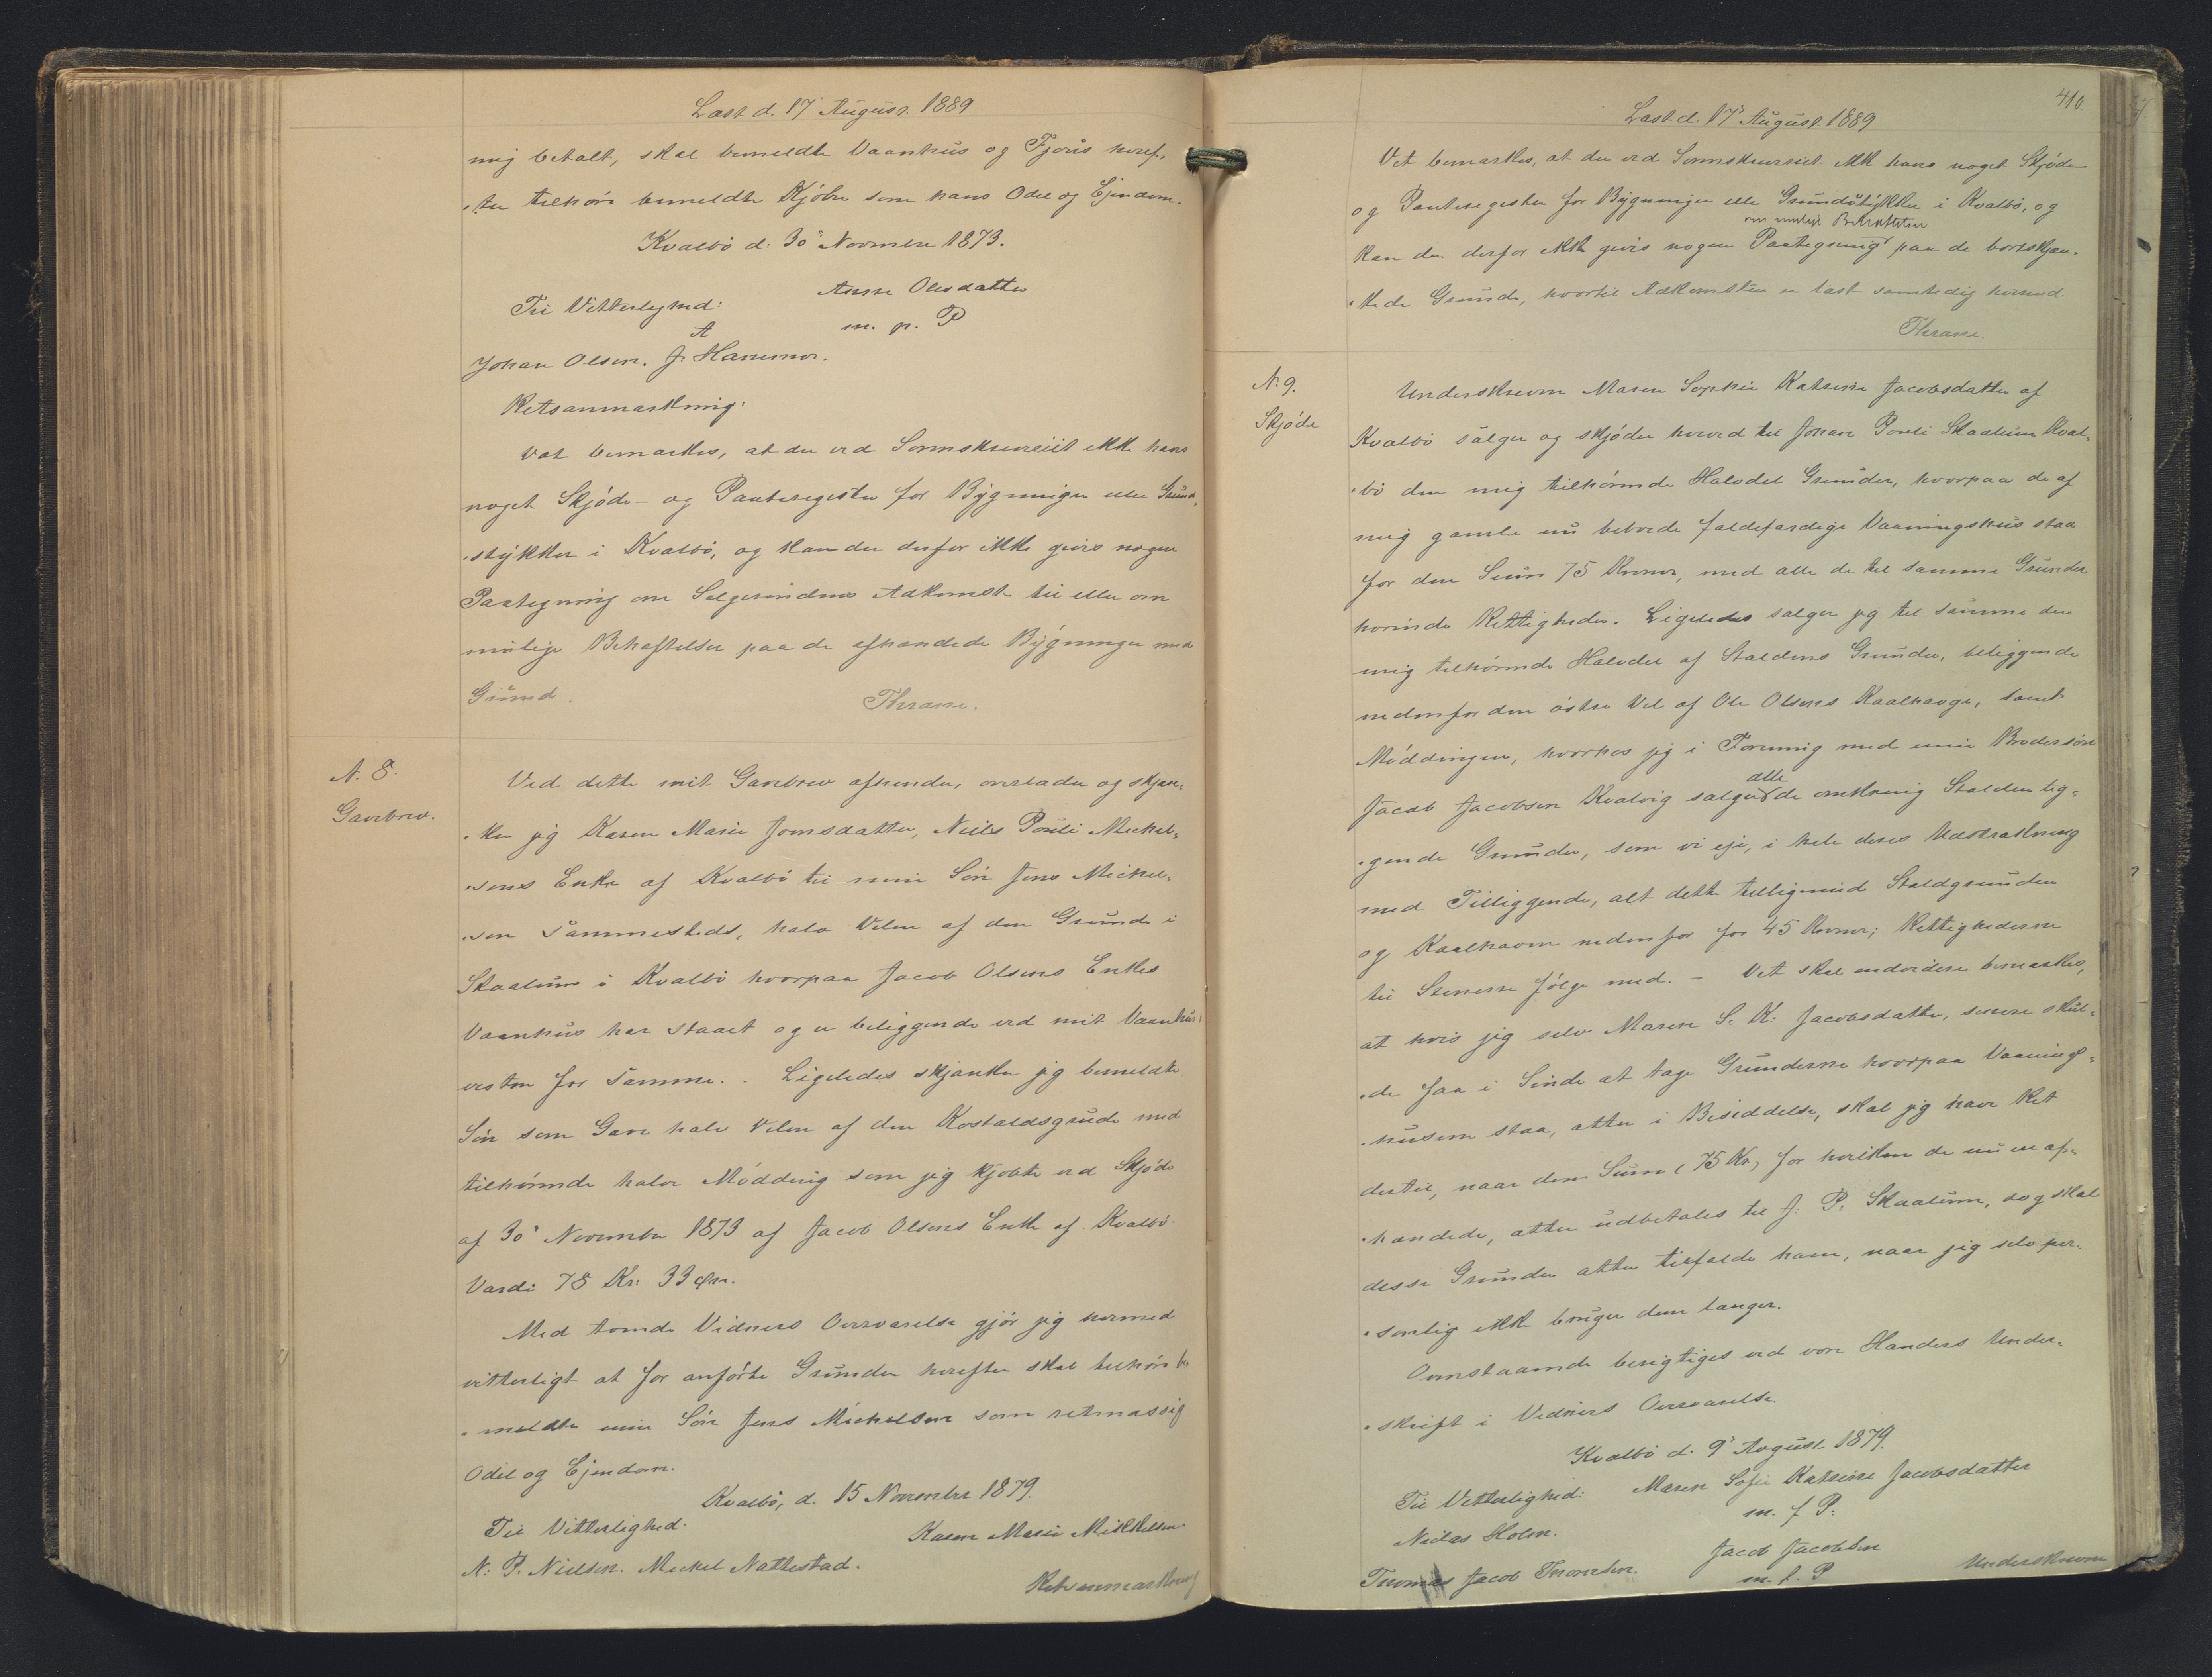 Læst d. 17' August. 1889
mig betalt, skal bemeldte Vaanhus og Fjøs heref-
„ter tilhøre bemeldte Kjøber som hans Odel og Ejendom.
Kvalbø d: 30' November 1873.
Til Vitterlighed: Anne Olesdatter
A m. p. P
Johan Olsen. J. Hammer.
Retsanmærkning:
Det bemærkes, at der ved Sorenskriveriet ikke haves
noget Skjøde- og Panteregister for Bygninger eller Grund-
„stykker i Kvalbø, og kan der derfor ikke gives nogen
Paategning om Sælgerindens Adkomst til eller om
mulige Behæftelser paa de afhændede Bygninger med
Grund. Thrane.
N. 8.
Gavebrev.
Ved dette mit Gavebrev afhænder, overlader og skjæn-
„ker jeg Karen Marie Joensdatter, Niels Pouli Mickel-
„sens Enke af Kvalbø til min Søn Jens Mickel-
„sen sammesteds, halv Delen af den Grunde i
Skaalum i Kvalbø hvorpaa Jacob Olsens Enkes
Vaanhus har staaet og er beliggende ved mit Vaanhus
vesten for samme. . Ligeledes skjænker jeg bemeldte
Søn som Gave halv Delen af den Kostaldsgrude med
tilhørende halve Mødding som jeg kjøbte ved Skjøde
af 30' November 1873 af Jacob Olsens Enke af Kvalbø.
Værdi 78 Kr. 33 Øre.
Med tvende Vidners Overværelse gjør jeg hermed
vitterligt at for anførte Grunder herefter skal tilhøre be
„meldte min Søn Jens Mickelsen som retmæssig
Odel og Ejendom.
Kvalbø, d. 15 November 1879.
Til Vitterlighed: Karen Marie Mikkelsen.
N. P. Nielsen. Mickel Nattestad.
Retsanmærkning
410.
Læst d. 17' August. 1889
Det bemærkes, at der ved Sorenskriveriet ikke haves noget Skjøde-
og Panteregister for Bygninger eller Grundstykker i Kvalbø, og
om mulige Behæftelser
kan der derfor ikke gives nogen Paategning paa de bortskjæn-
„kede Grunde, hvortil Adkomsten er læst samtidig hermed
Thrane.
N. 9.
Skjøde
Underskrevne Maren Sophie Katrine Jacobsdatter af
Kvalbø sælger og skjøder herved til Johan Pouli Skaalum Kval-
„bø den mig tilhørende Halvdel Grunder, hvorpaa de af
mig gamle nu beboede faldefærdige Vaaningshus staa
for den Sum 75 Kroner, med alle de til samme Grunder
hørende Rettigheder. Ligeledes sælger jeg til samme den
mig tilhørende Halvdel af Staldens Grunder, beliggende
nedenfor den østre Del af Ole Olsens Kaalhauge, samt
Møddingen, hvorhos jeg i Forening med min Brodersøn
alle
Jacob Jacobsen Kvalvig sælger de omkring Stalden lig-
„gende Grunder, som vi eje, i hele deres Udstrækning
med Tilliggende, alt dette tilligemed Staldgrunden
og Kaalhaven nedenfor for 45 Kroner; Rettighederne
til Stenene følge med. - Det skal endvidere bemærkes,
at hvis jeg selv Maren S. K. Jacobsdatter, senere skul-
„de faa i Sinde at tage Grunderne hvorpaa Vaanings-
„husene staa, atter i Besiddelse, skal jeg have Ret
dertil, naar den Sum (75 Kr.) for hvilken de nu ere af-
„hændede, atter udbetales til J. P. Skaalum, dog skal
disse Grunder atter tilfalde ham, naar jeg selv per-
„sonlig ikke bruger dem længer.
Ovenstaaende berigtiges ved vore Hænders Under-
„skrift i Vidners Overværelse.
Kvalbø d. 9' August 1879.
Til Vitterlighed: Maren Sofie Katrine Jacobsdatter
Niclas Holm. m. f. P.
Jacob Jacobsen
Thomas Jacob Thomsen. m. f. P
Underskrevne